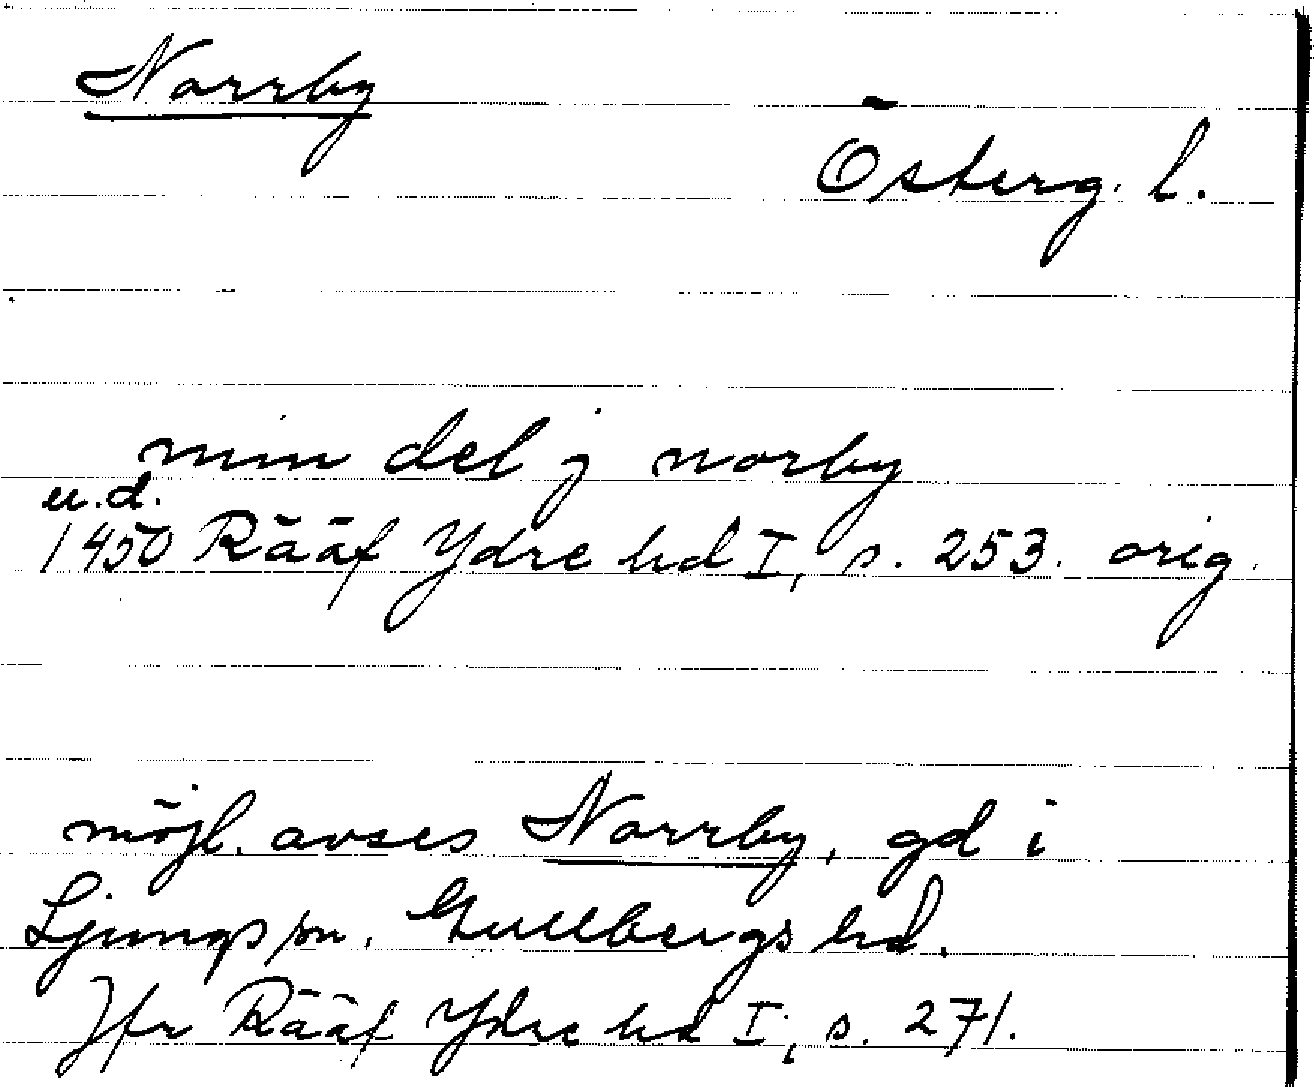 Norrby
Österg. l.
min del j norby
u.d.
1450 Rääf Ydre hd I, s. 253. orig.
möjl. avses Norrby, gd i
Ljungs sn. Gullbergs hd.
Jfr Rääf Ydre hd I, s. 271.